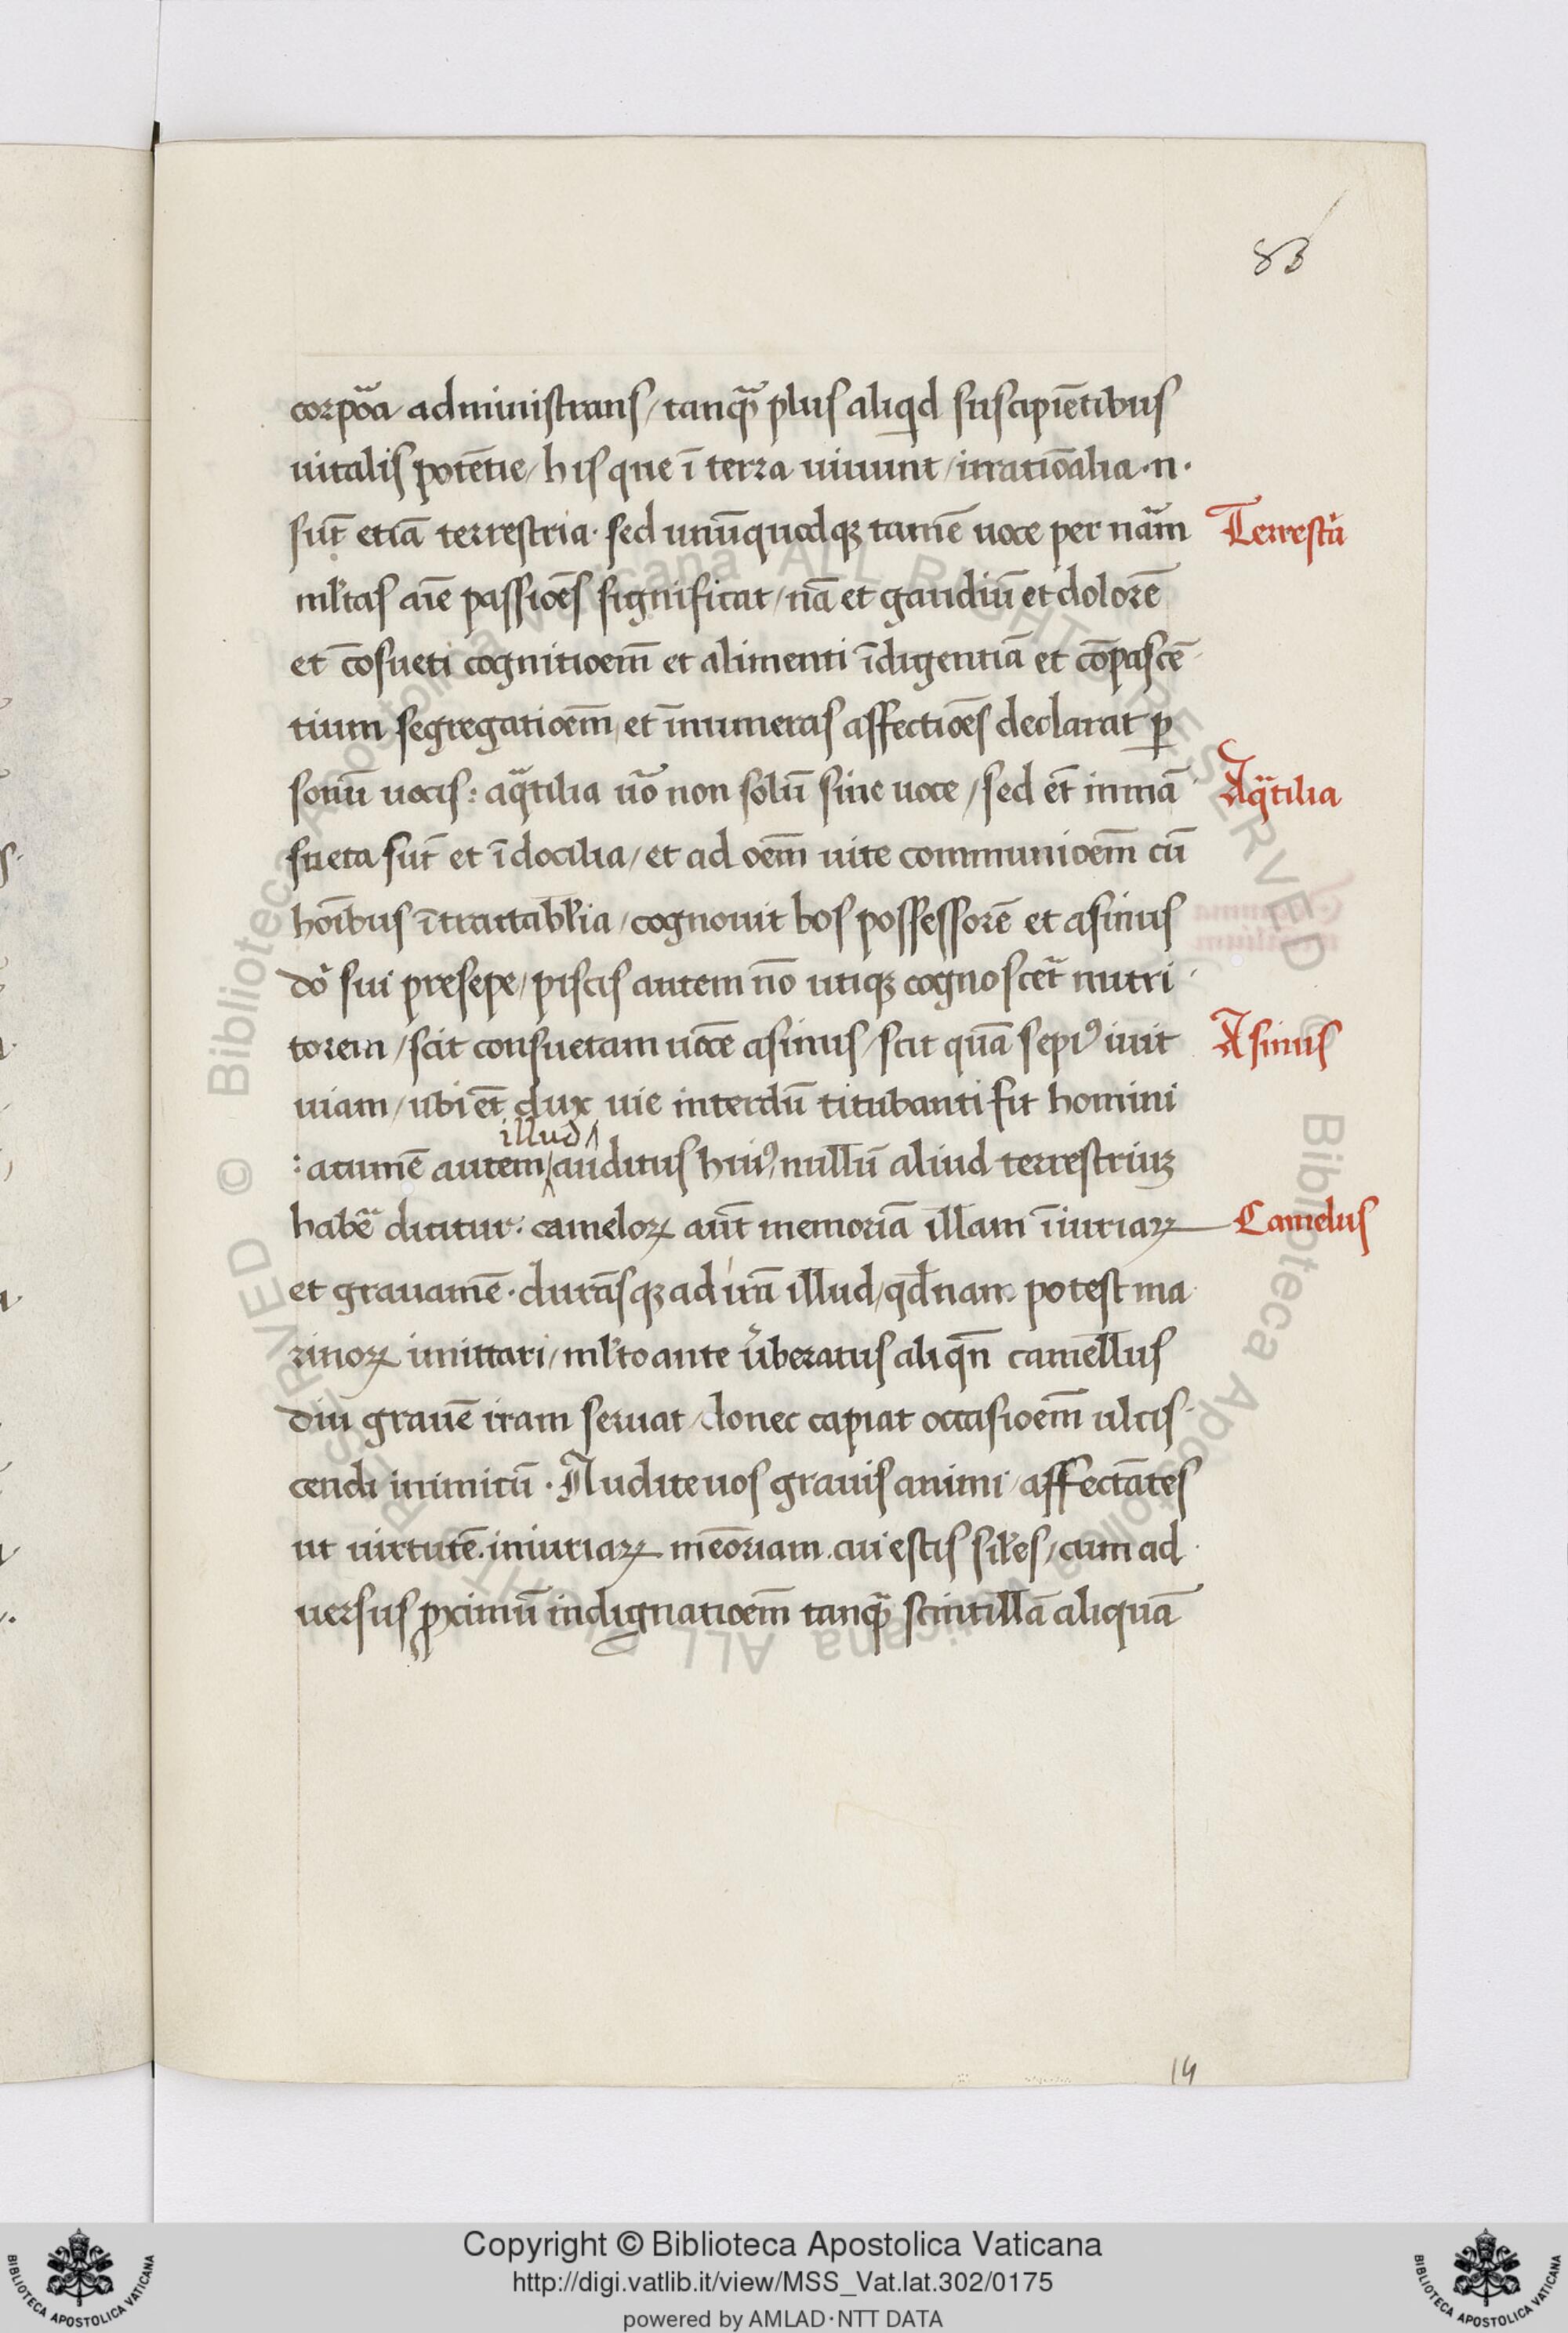 83
corpōa administrans / tanq̃ plus aliqd suscipiētibus
uitalis potētie / his que ī terra uiuunt / irratiōalia .n.
sūt etiā terrestria. sed unūquodqꝫ tamē uoce per nãm
Terrestia
ml'tas aīe passiōes significat / nā et gaudiū et dolorē
et cōsueti cognitioem̄ et alimenti īdigentiā et cōpascē
tium segregatioem̄ / et īnumeras affectiōes declarat ꝑ
sonū uocis : aq̃tilia uõ non solū sine uoce / sed et̄ inmā
Aq̃tilia
sueta sūt et īdocilia / et ad oem̄ uite communioem̄ cū
hoībus ītractabl'ia / cognouit bos possessorē et asinus
dō sui presepe / piscis autem nō utiqꝫ cognoscet̃ nutri
torem / scit consuetam uocē asinus / scit quā sepiꝰ iuit
Asinus
uiam / ubi et̄ dux uie interdū titubanti fit homini
illud
: acumē autem / auditus huiꝰ / nullū aliud terrestriuꝫ
habẽ dicitur : cameloꝝ aūt memoriā illam īiuriaꝝ
Camelus
et grauamē . durāsqꝫ ad irā illud / qd̄nam potest ma
rinoꝝ imittari / ml'to ante ũberatus aliqn̄ camellus
diu grauē iram seruat / donec capiat occasioem̄ ulcis
cendi inimicū . Audite uos grauis animi / affectātes
ut uirtutē . iniuriaꝝ meōriam . cui estis sil'es / cum ad
uersus ꝓximū indignatioem̄ tanq̃ scintillā aliquā
14
Copyright © Biblioteca Apostolica Vaticana
http://digi.vatlib.it/view/MSS_Vat.lat.302/0175
powered by AMLAD·NTT DATA